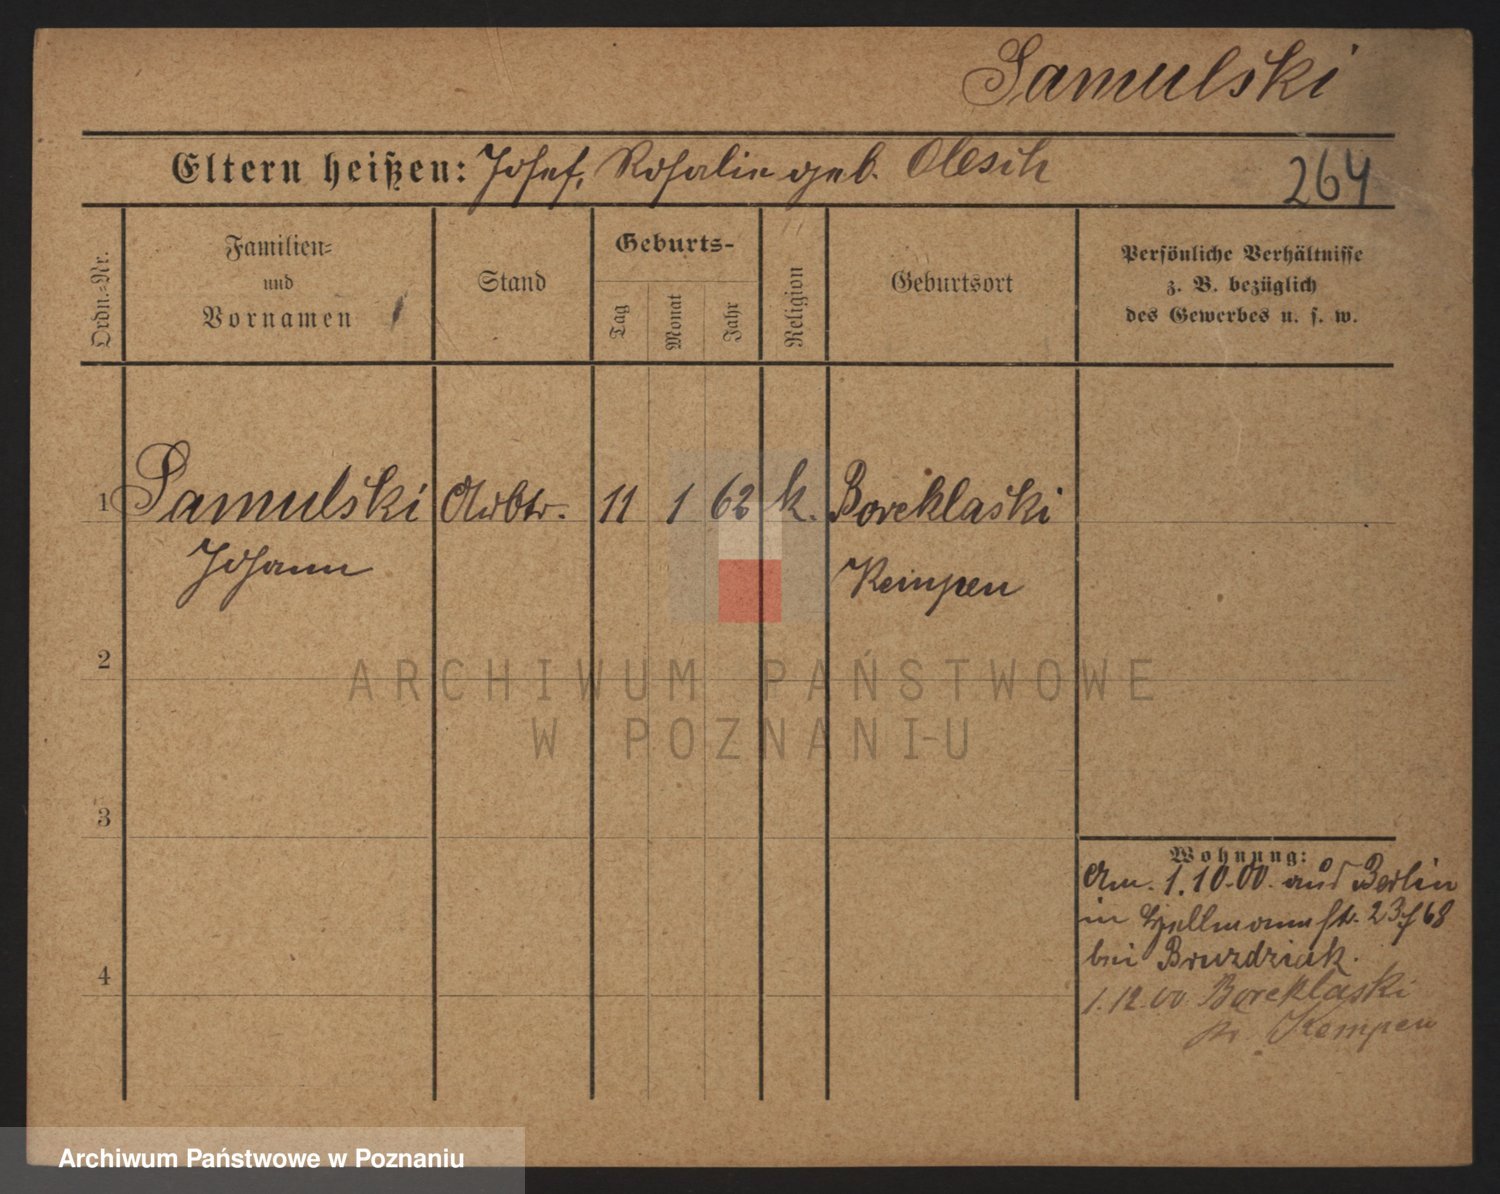 Samulski
Eltern heißen: Josef, Rosalie geb. Olesch
264
Ordn.-Nr.
Familien-
und
Vornamen
Stand
Geburts-
Tag
Monat
Jahr
Religion
Geburtsort
Persönliche Verhältnisse
z. B. bezüglich
des Gewerbes u. s. w.
1 Samulski Arbtr. 11 1 62 k. Boreklaski
Johann Kempen
2
3
4
Wohnung:
Am 1.10.00. aus Berlin
in 23/68
bei Bruzdziak.
1.12.00 Boreklaski
Kr. Kempen
ARCHIWUM PAŃSTWOWE
W POZNANIU
Archiwum Państwowe w Poznaniu